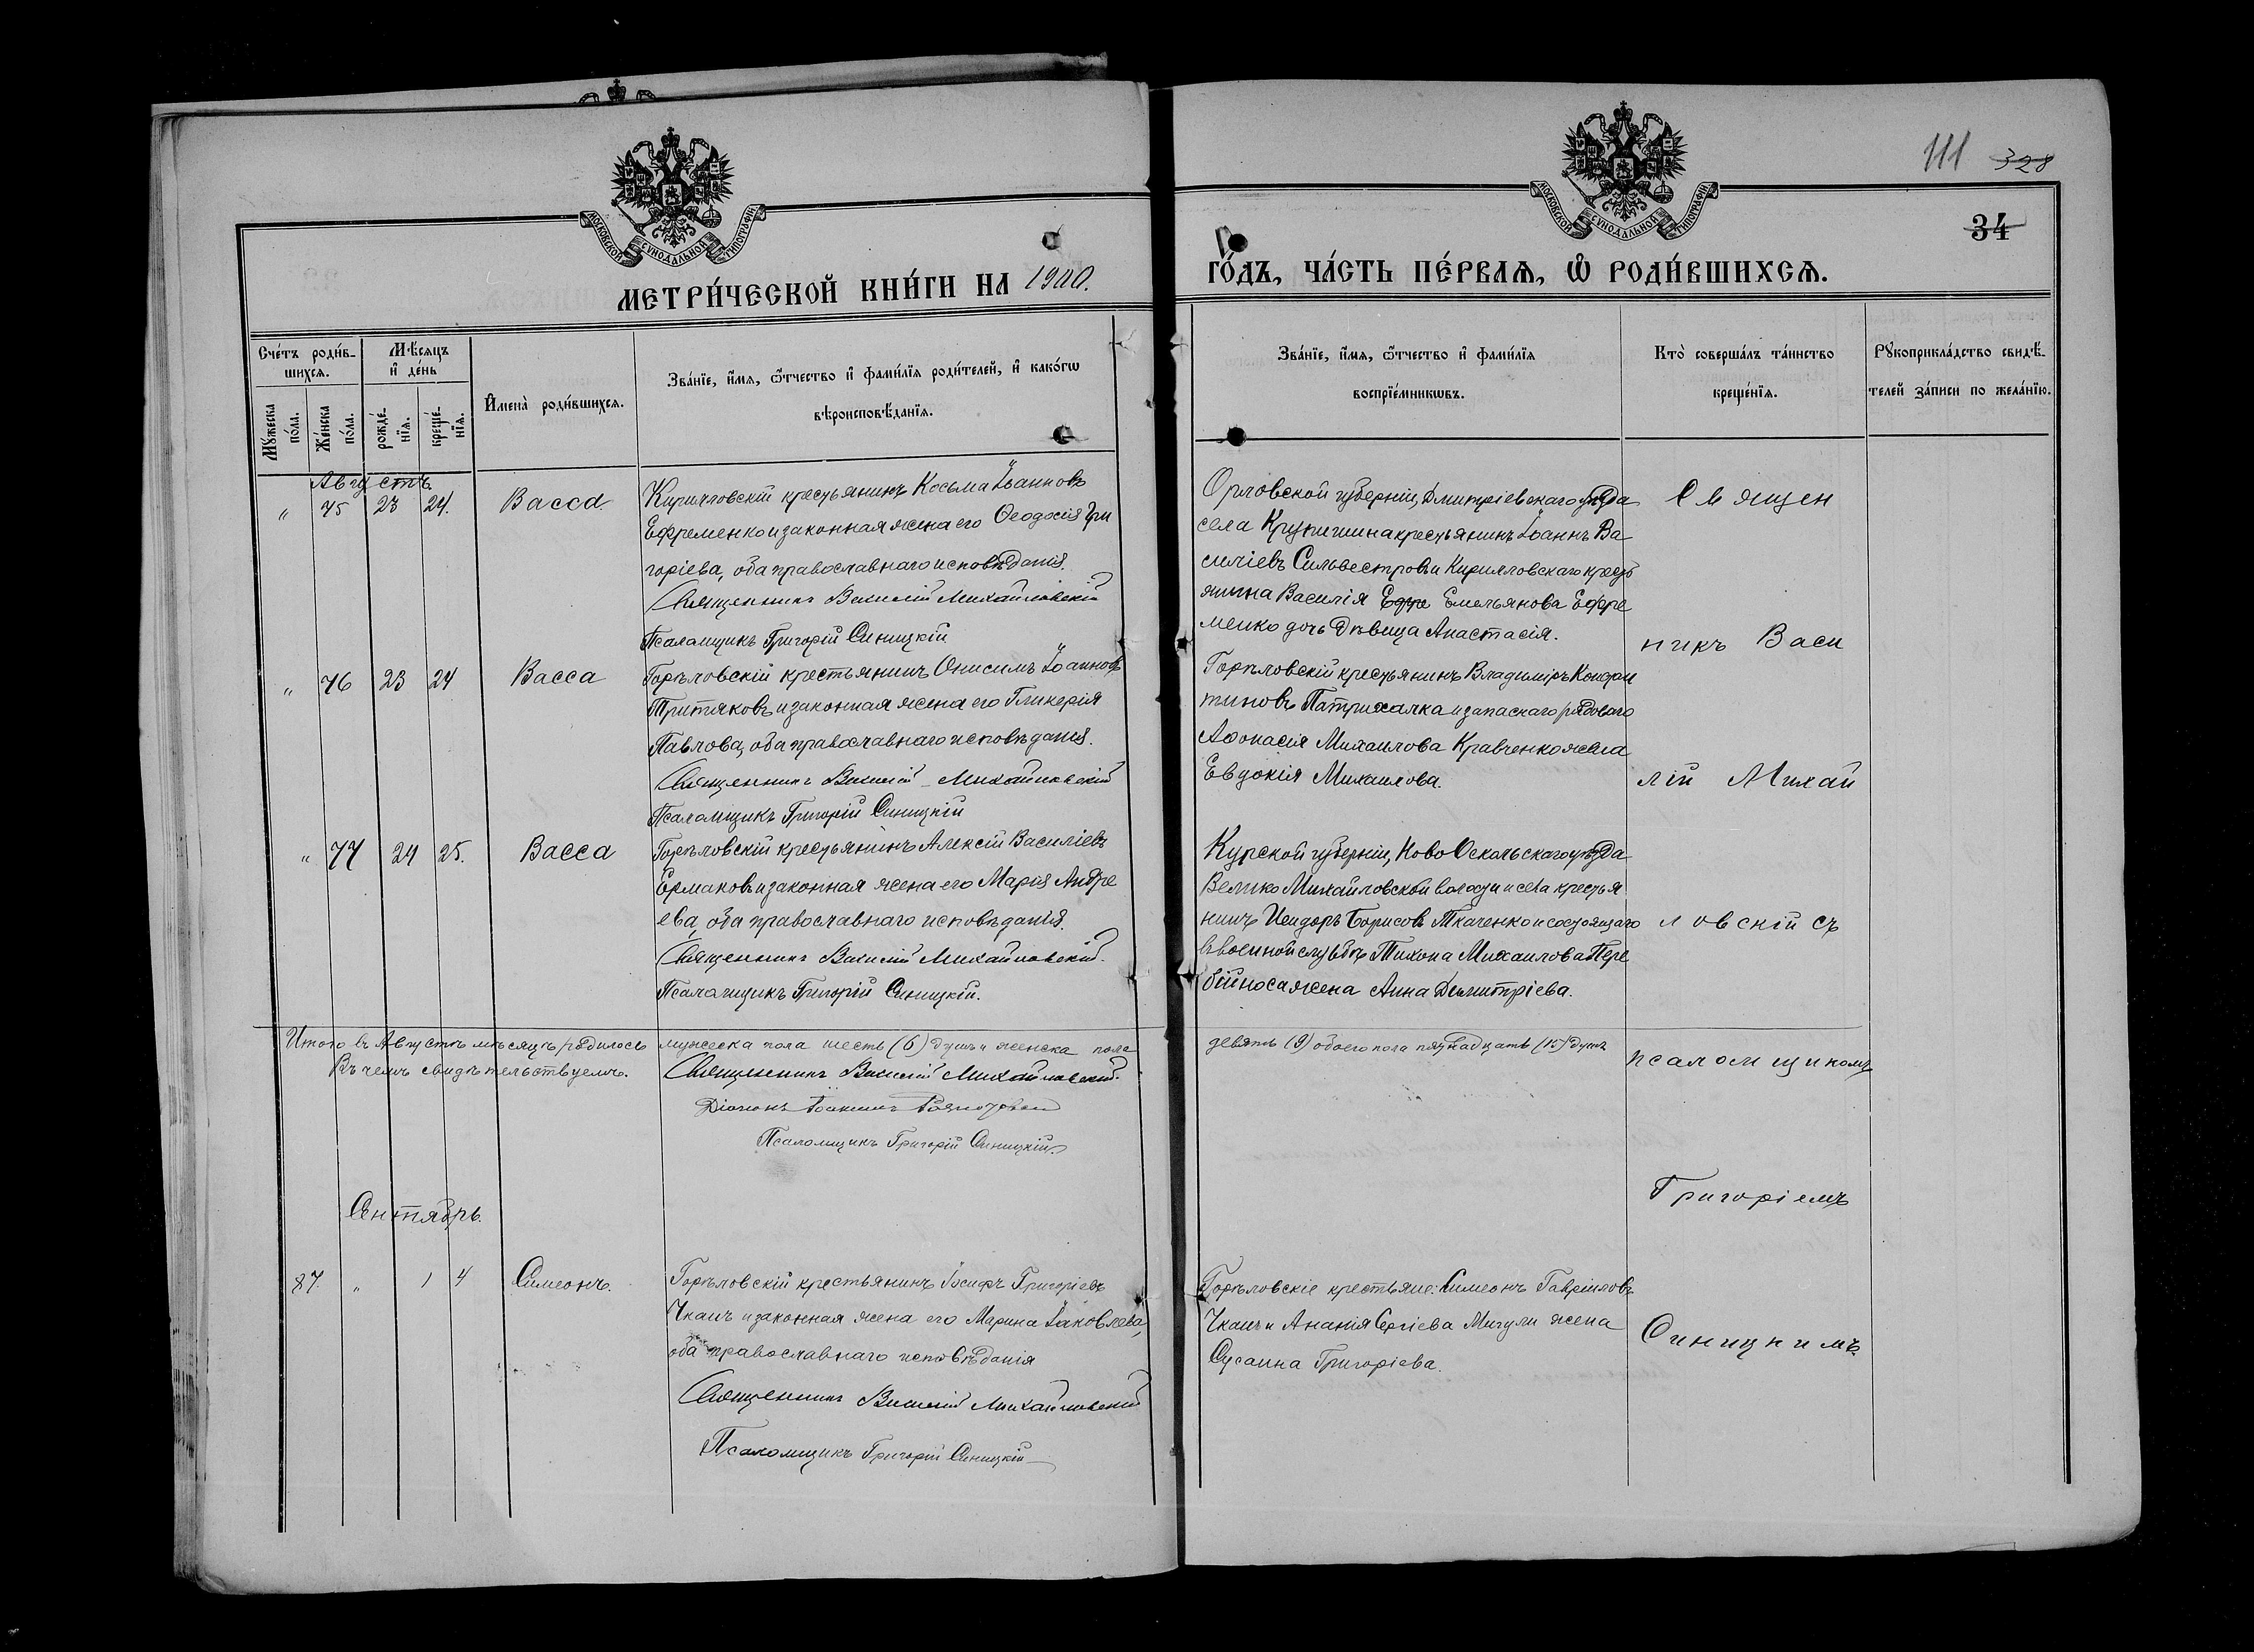 111 328
34
МОСКОВСКОЙ СѴНОДАЛЬНОЙ ТИПОГРАФІИ
МОСКОВСКОЙ СѴНОДАЛЬНОЙ ТИПОГРАФІИ
МЕТРИ́ЧЕСКОЙ КНИ́ГИ НА 1900.
ГО́ДЪ, ЧА́СТЬ ПЕ́РВАѦ, Ѡ҆ РОДИ́ВШИХСѦ.
Сче́тъ роди́в-
шихсѧ.
Мѣ́сѧцъ
и҆ де́нь
Мꙋ́жеска
по́ла.
Же́нска
по́ла.
рожде́-
нїѧ.
креще́-
нїѧ.
И҆мена̀ роди́вшихсѧ.
Зва́нїе, и҆́мѧ, ѻ҆́тчество и҆ фами́лїѧ роди́телей, и҆ како́гѡ
вѣроисповѣ́данїѧ.
Зва́нїе, и҆́мѧ, ѻ҆́тчество и҆ фами́лїѧ
воспрїе́мникѡвъ.
Кто̀ соверша́лъ та́инство
креще́нїѧ.
Рꙋкоприкла́дство свидѣ́-
телей за́писи по жела́нїю.
Августъ.
„ 75 23 24. Васса
Кирилловскій крестьянинъ Косьма Іоанновъ
Ефременко и законная жена его Ѳеодосія Гри
горіева, оба православнаго исповѣданія.
Священникъ Василій Михайловскій
Псаломщикъ Григорій Синицкій
Орловской губерніи, Дмитріевскаго уѣзда
села Крупишина крестьянинъ Іоаннъ Ва
силіевъ Сильвестровъ и Кирилловскаго кресть
янина Василія Ефре Емельянова Ефре
менко дочь дѣвица Анастасія.
„ 76 23 24 Васса
Горѣловскій крестьянинъ Онисимъ Іоанновъ
Тритяковъ и законная жена его Гликерія
Павлова, оба православнаго исповѣданія.
Священникъ Василій Михайловскій
Псаломщикъ Григорій Синицкій
Горѣловскій крестьянинъ Владиміръ Кондра
тиновъ Патрихалка и запаснаго рядоваго
Аѳонасія Михаилова Кравченко жена
Евдокія Михаилова.
„ 77 24 25. Васса
Горѣловскій крестьянинъ Алексій Василіевъ
Ермаковъ и законная жена его Марія Андре
ева, оба православнаго исповѣданія.
Священникъ Василій Михайловскій.
Псаломщикъ Григорій Синицкій.
Курской губерніи, Ново Оскольскаго уѣзда
Велико Михайловской волости и села крестья
нинъ Исидоръ Борисовъ Ткаченко и состоящаго
въ военной службѣ Тихона Михаилова Пере
бійноса жена Анна Димитріева.
Итого въ Августѣ мѣсяцѣ родилось мужеска пола шесть (6) душъ и женска пола
девять (9) обоего пола пятнадцать (15) душъ
Въ чемъ свидѣтельствуемъ. Священникъ Василій Михайловскій.
Діаконъ Іоаннъ
Псаломщикъ Григорій Синицкій.
Сентябрь.
87. „ 1 4 Симеонъ.
Горѣловскій крестьянинъ Іосифъ Григоріевъ
Чкань и законная жена его Марина Іаковлева,
оба православнаго исповѣданія
Священникъ Василій Михайловскій
Псаломщикъ Григорій Синицкій
Горѣловскіе крестьяне: Симеонъ Гавріиловъ
Чкань и Ананія Сергіева Мигули жена
Сусанна Григоріева.
Священ
никъ Васи
лій Михай
ловскій съ
псаломщикомъ
Григоріемъ
Синицкимъ.